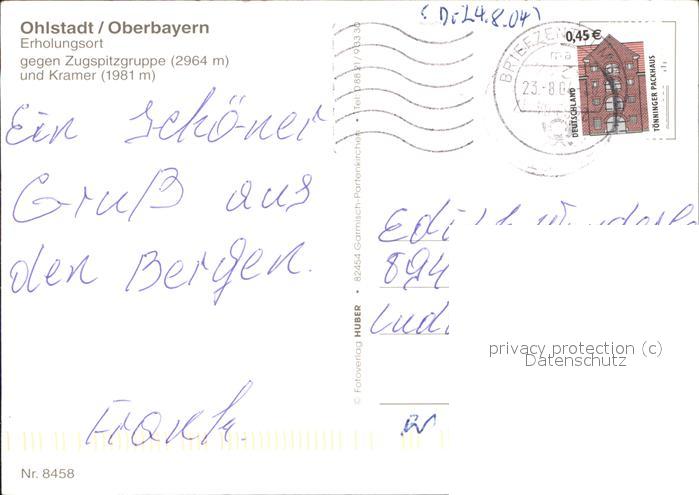 Ohlstadt / Oberbayern
Erholungsort
gegen Zugspitzgruppe (2964 m)
und Kramer (1981 m)
(Di 24.8.04)
BRIEFZEN
23.-8.0
0,45 €
DEUTSCHLAND
TÖNNINGER PACKHAUS
Ein schöner
Gruß aus
den Bergen.
Frank.
© Fotoverlag HUBER • 82454 Garmisch-Partenkirchen • Tel. 0 88 21 / 9 33 30
Edith
894
Ludw
privacy protection (c)
Datenschutz
Nr. 8458